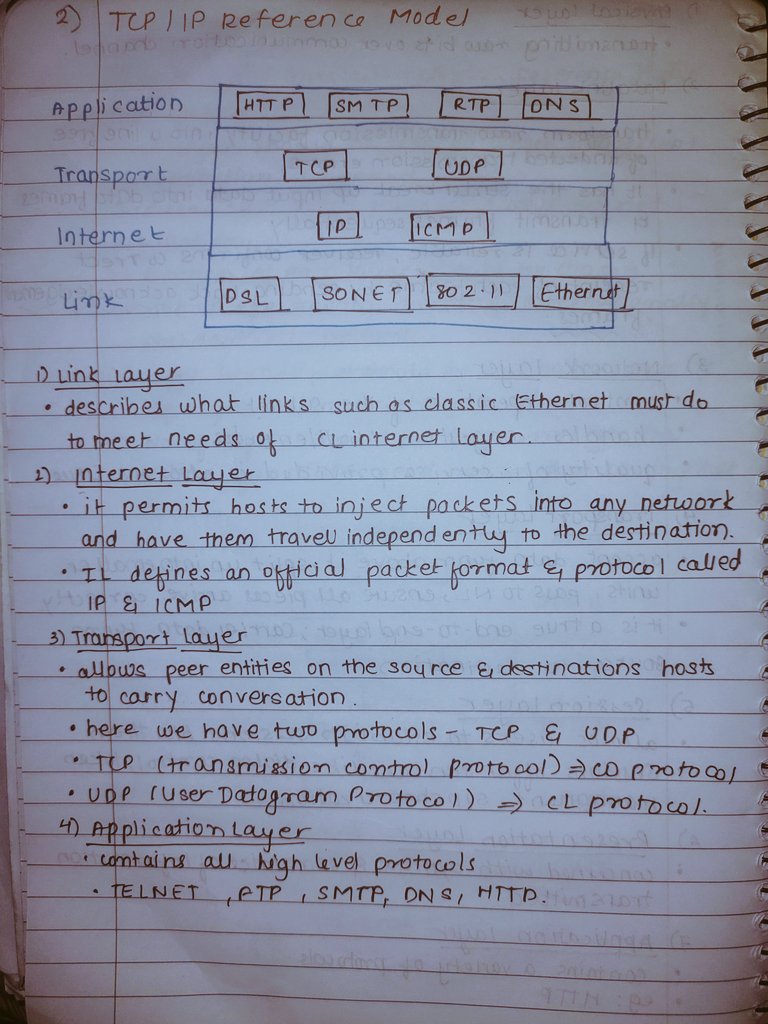 2) TCP/IP Reference Model
Application HTTP SMTP RTP DNS
Transport TCP UDP
Internet IP ICMP
Link DSL SONET 802.11 Ethernet
1) Link Layer
• describes what links such as classic Ethernet must do
to meet needs of CL internet layer.
2) Internet Layer
• it permits hosts to inject packets into any network
and have them travel independently to the destination.
• IL defines an official packet format & protocol called
IP & ICMP
3) Transport layer
• allows peer entities on the source & destinations hosts
to carry conversation.
• here we have two protocols - TCP & UDP
• TCP (transmission control protocol) ⇒ CO protocol
• UDP (User Datagram Protocol) ⇒ CL protocol.
4) Application Layer
• contains all high level protocols
• TELNET, FTP, SMTP, DNS, HTTP.